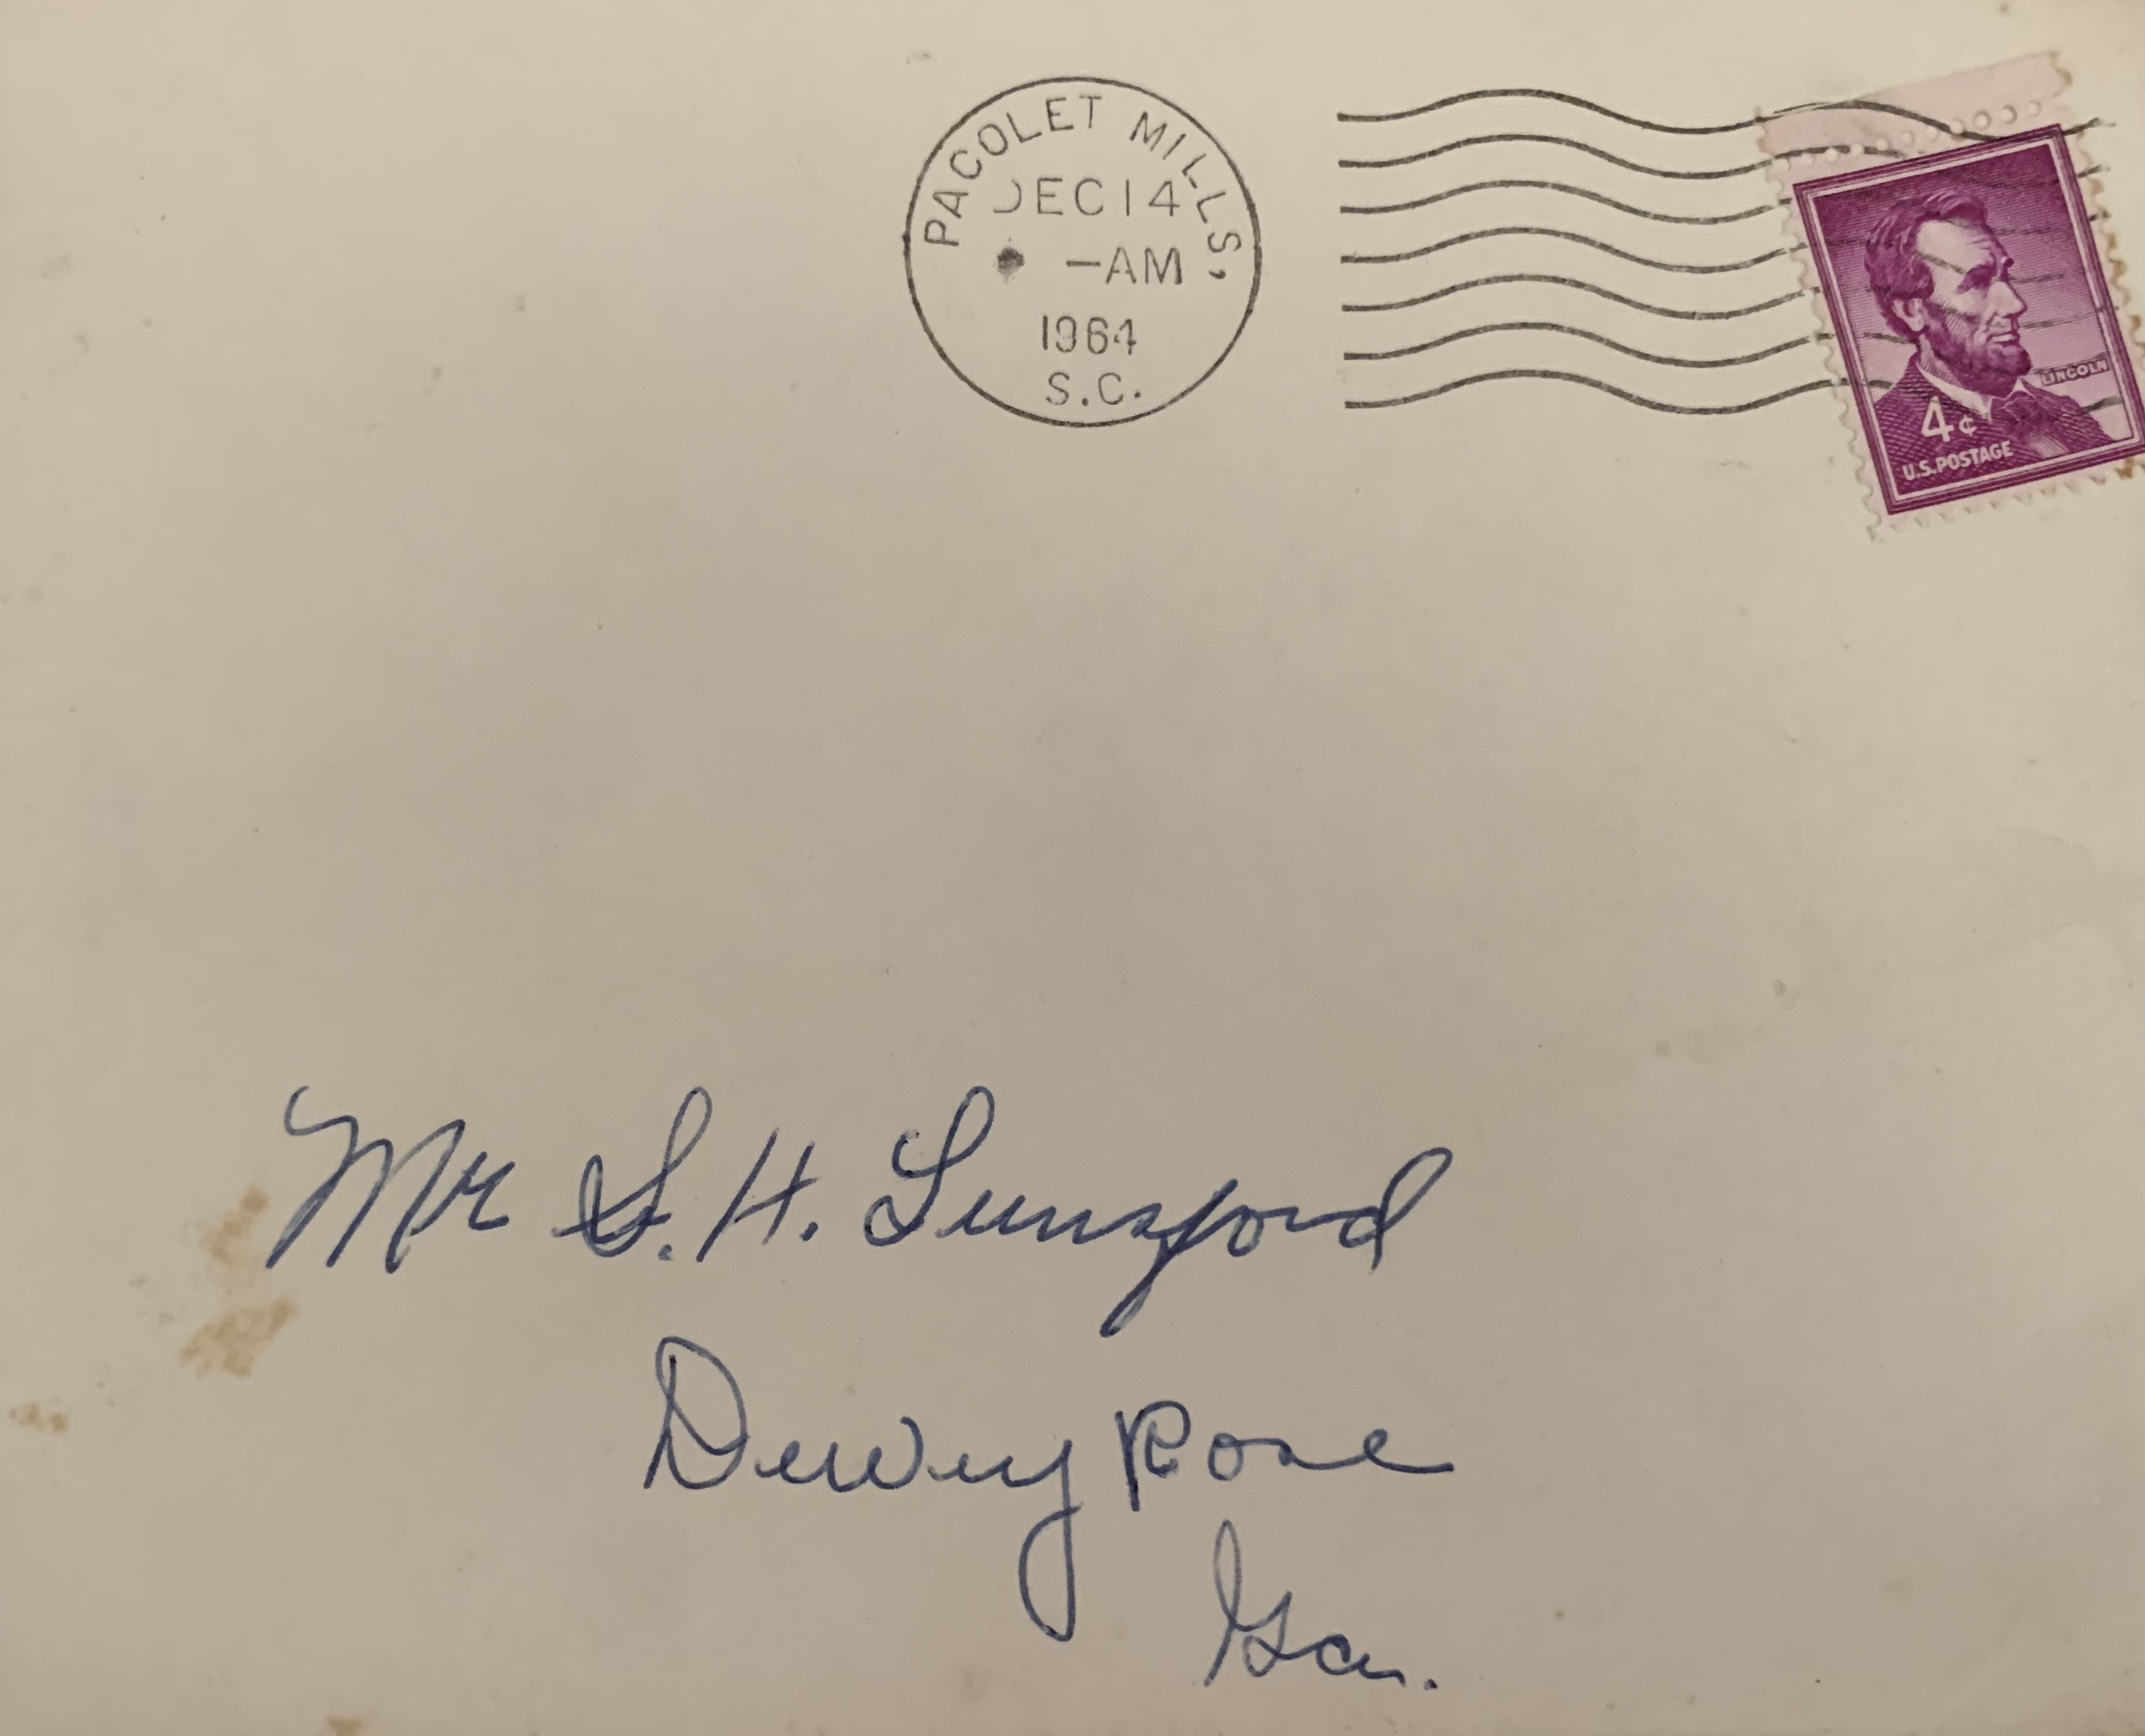 PACOLET MILLS,
DEC 14
-AM
1964
S.C.
LINCOLN
4¢
U.S. POSTAGE
Mr S. H. Lunsford
Dewey Rose
Ga.